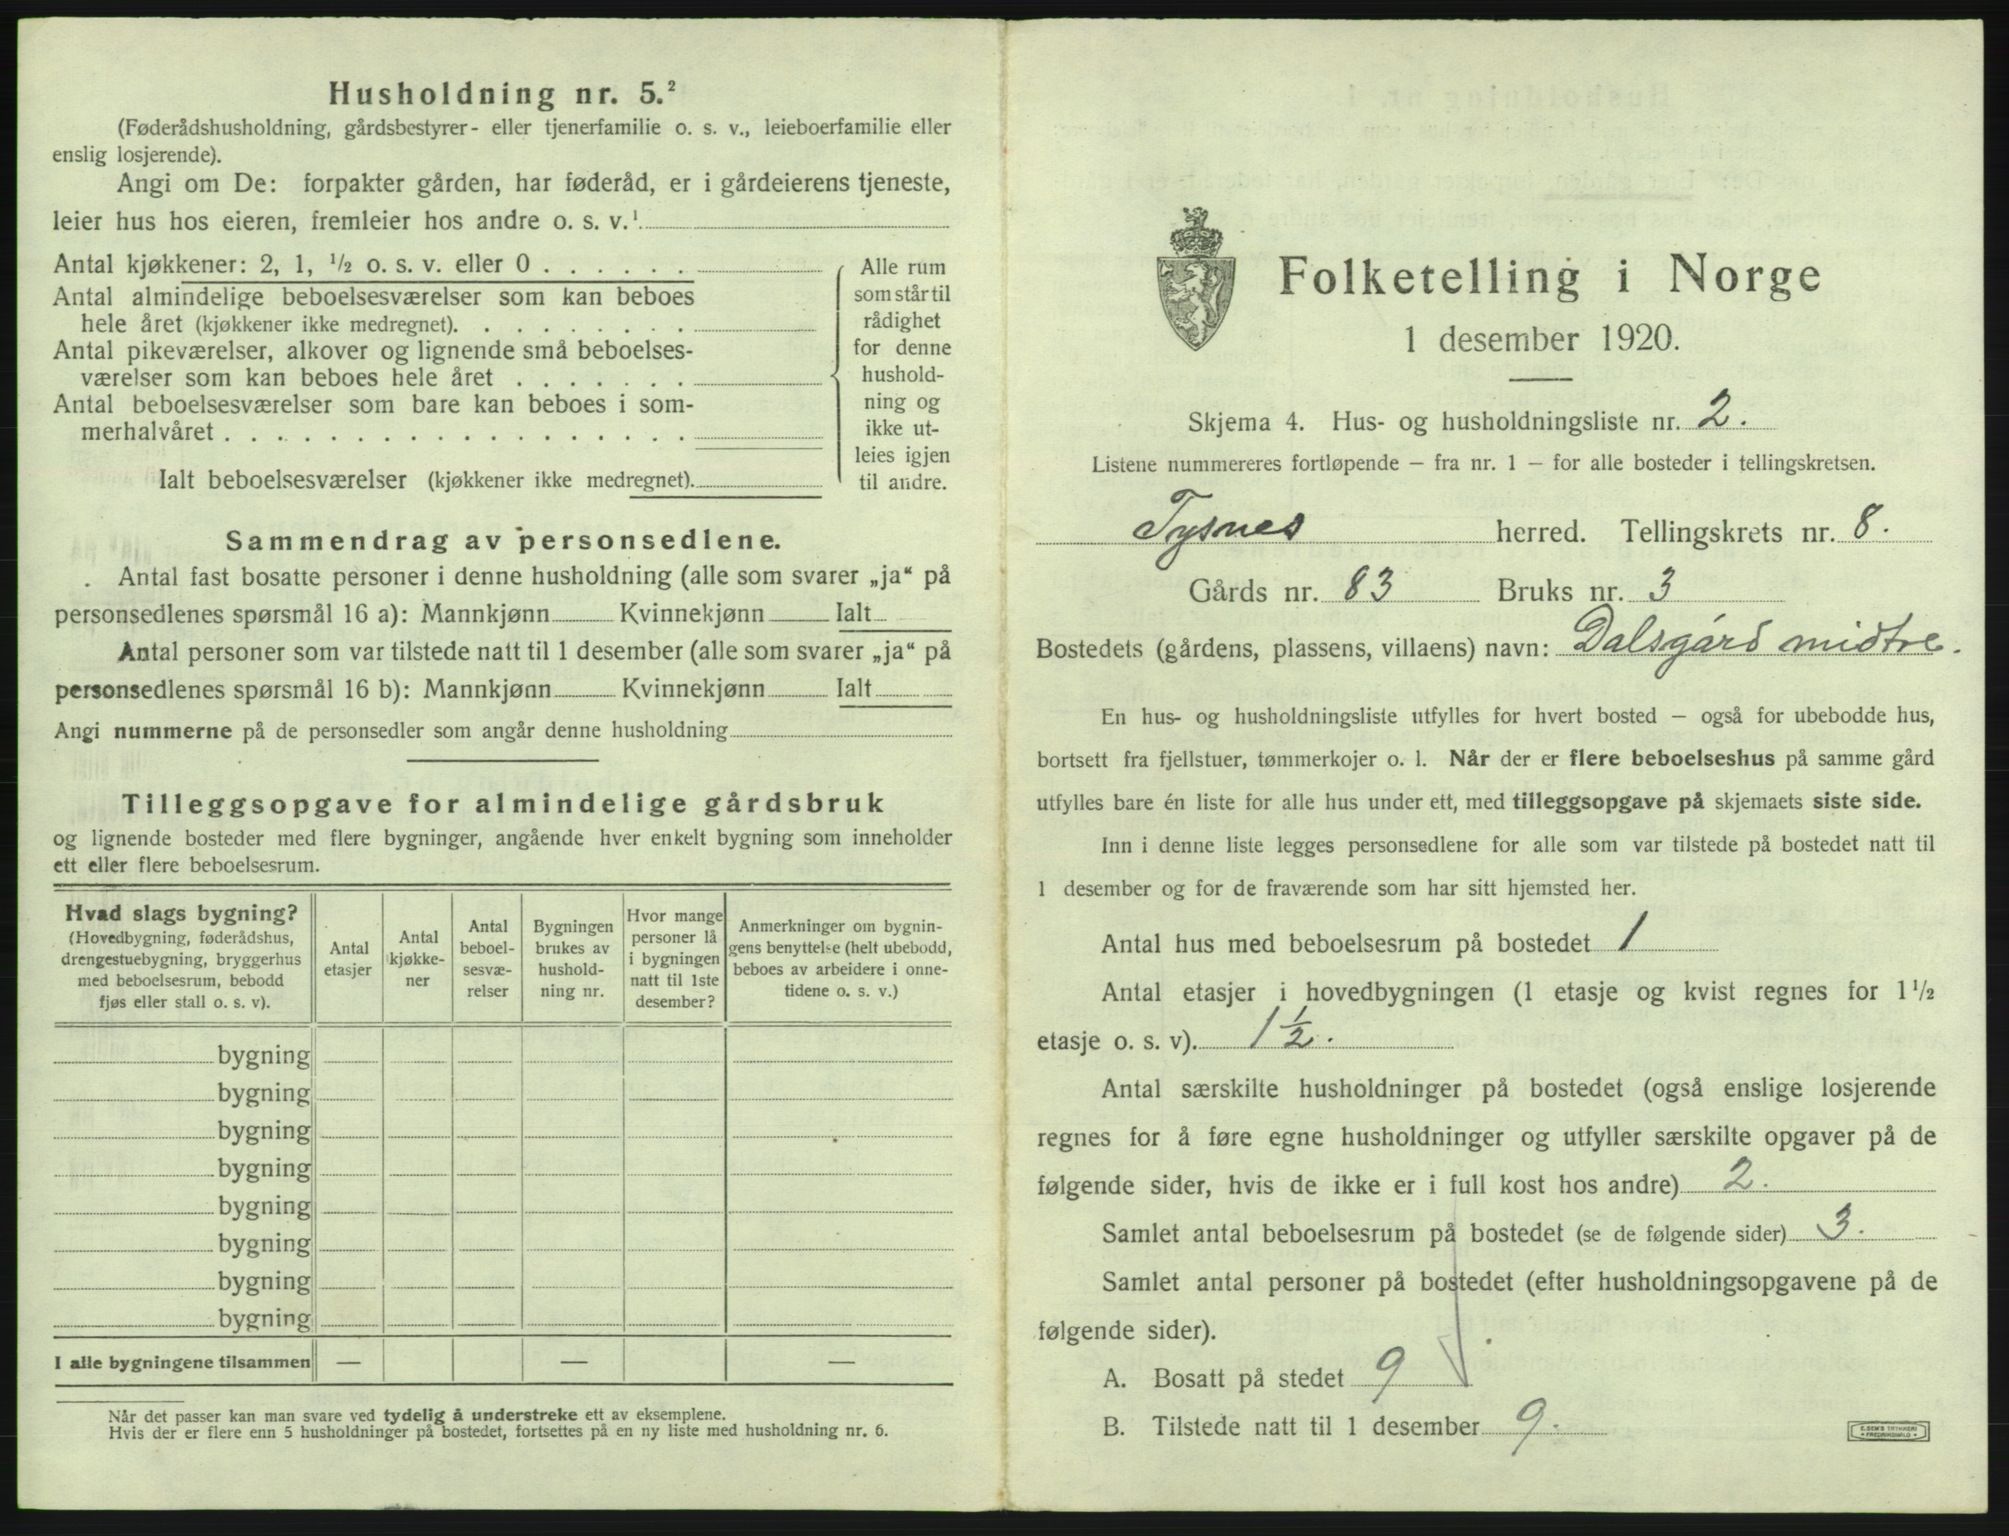 Husholdning nr. 5.²
(Føderådshusholdning, gårdsbestyrer- eller tjenerfamilie o. s. v., leieboerfamilie eller
enslig losjerende).
Angi om De: forpakter gården, har føderåd, er i gårdeierens tjeneste,
leier hus hos eieren, fremleier hos andre o. s. v.¹
Antal kjøkkener: 2, 1, ¹/₂ o. s. v. eller 0 . . . . . .
Antal almindelige beboelsesværelser som kan beboes
hele året (kjøkkener ikke medregnet). . . . . . . . .
Antal pikeværelser, alkover og lignende små beboelses-
værelser som kan beboes hele året . . . . . . .
Antal beboelsesværelser som bare kan beboes i som-
merhalvåret . . . . . . . . . . . . . . . . .
Ialt beboelsesværelser (kjøkkener ikke medregnet).
Alle rum
som står til
rådighet
for denne
hushold-
ning og
ikke ut-
leies igjen
til andre.
Sammendrag av personsedlene.
Antal fast bosatte personer i denne husholdning (alle som svarer „ja“ på
personsedlenes spørsmål 16 a): Mannkjønn Kvinnekjønn Ialt
Antal personer som var tilstede natt til 1 desember (alle som svarer „ja“ på
personsedlenes spørsmål 16 b): Mannkjønn Kvinnekjønn Ialt
Angi nummerne på de personsedler som angår denne husholdning
Tilleggsopgave for almindelige gårdsbruk
og lignende bosteder med flere bygninger, angående hver enkelt bygning som inneholder
ett eller flere beboelsesrum.
Hvad slags bygning?
(Hovedbygning, føderådshus,
drengestuebygning, bryggerhus
med beboelsesrum, bebodd
fjøs eller stall o. s. v).
Antal
etasjer
Antal
kjøkke-
ner
Antal
beboel-
sesvæ-
relser
Bygningen
brukes av
hushold-
ning nr.
Hvor mange
personer lå
i bygningen
natt til 1ste
desember?
Anmerkninger om bygnin-
gens benyttelse (helt ubebodd,
beboes av arbeidere i onne-
tidene o. s. v.)
bygning
bygning
bygning
bygning
bygning
bygning
bygning
bygning
I alle bygningene tilsammen — — —
Når det passer kan man svare ved tydelig å understreke ett av eksemplene.
Hvis der er flere enn 5 husholdninger på bostedet, fortsettes på en ny liste med husholdning nr. 6.
Folketelling i Norge
1 desember 1920.
Skjema 4. Hus- og husholdningsliste nr. 2.
Listene nummereres fortløpende – fra nr. 1 – for alle bosteder i tellingskretsen.
Tysnes herred. Tellingskrets nr. 8.
Gårds nr. 83 Bruks nr. 3
Bostedets (gårdens, plassens, villaens) navn: Dalsgård midtre.
En hus- og husholdningsliste utfylles for hvert bosted – også for ubebodde hus,
bortsett fra fjellstuer, tømmerkojer o. l. Når der er flere beboelseshus på samme gård
utfylles bare én liste for alle hus under ett, med tilleggsopgave på skjemaets siste side.
Inn i denne liste legges personsedlene for alle som var tilstede på bostedet natt til
1 desember og for de fraværende som har sitt hjemsted her.
Antal hus med beboelsesrum på bostedet 1
Antal etasjer i hovedbygningen (1 etasje og kvist regnes for 1¹/₂
etasje o. s. v). 1½.
Antal særskilte husholdninger på bostedet (også enslige losjerende
regnes for å føre egne husholdninger og utfyller særskilte opgaver på de
følgende sider, hvis de ikke er i full kost hos andre) 2.
Samlet antal beboelsesrum på bostedet (se de følgende sider) 3.
Samlet antal personer på bostedet (efter husholdningsopgavene på de
følgende sider).
A. Bosatt på stedet 9
B. Tilstede natt til 1 desember 9.